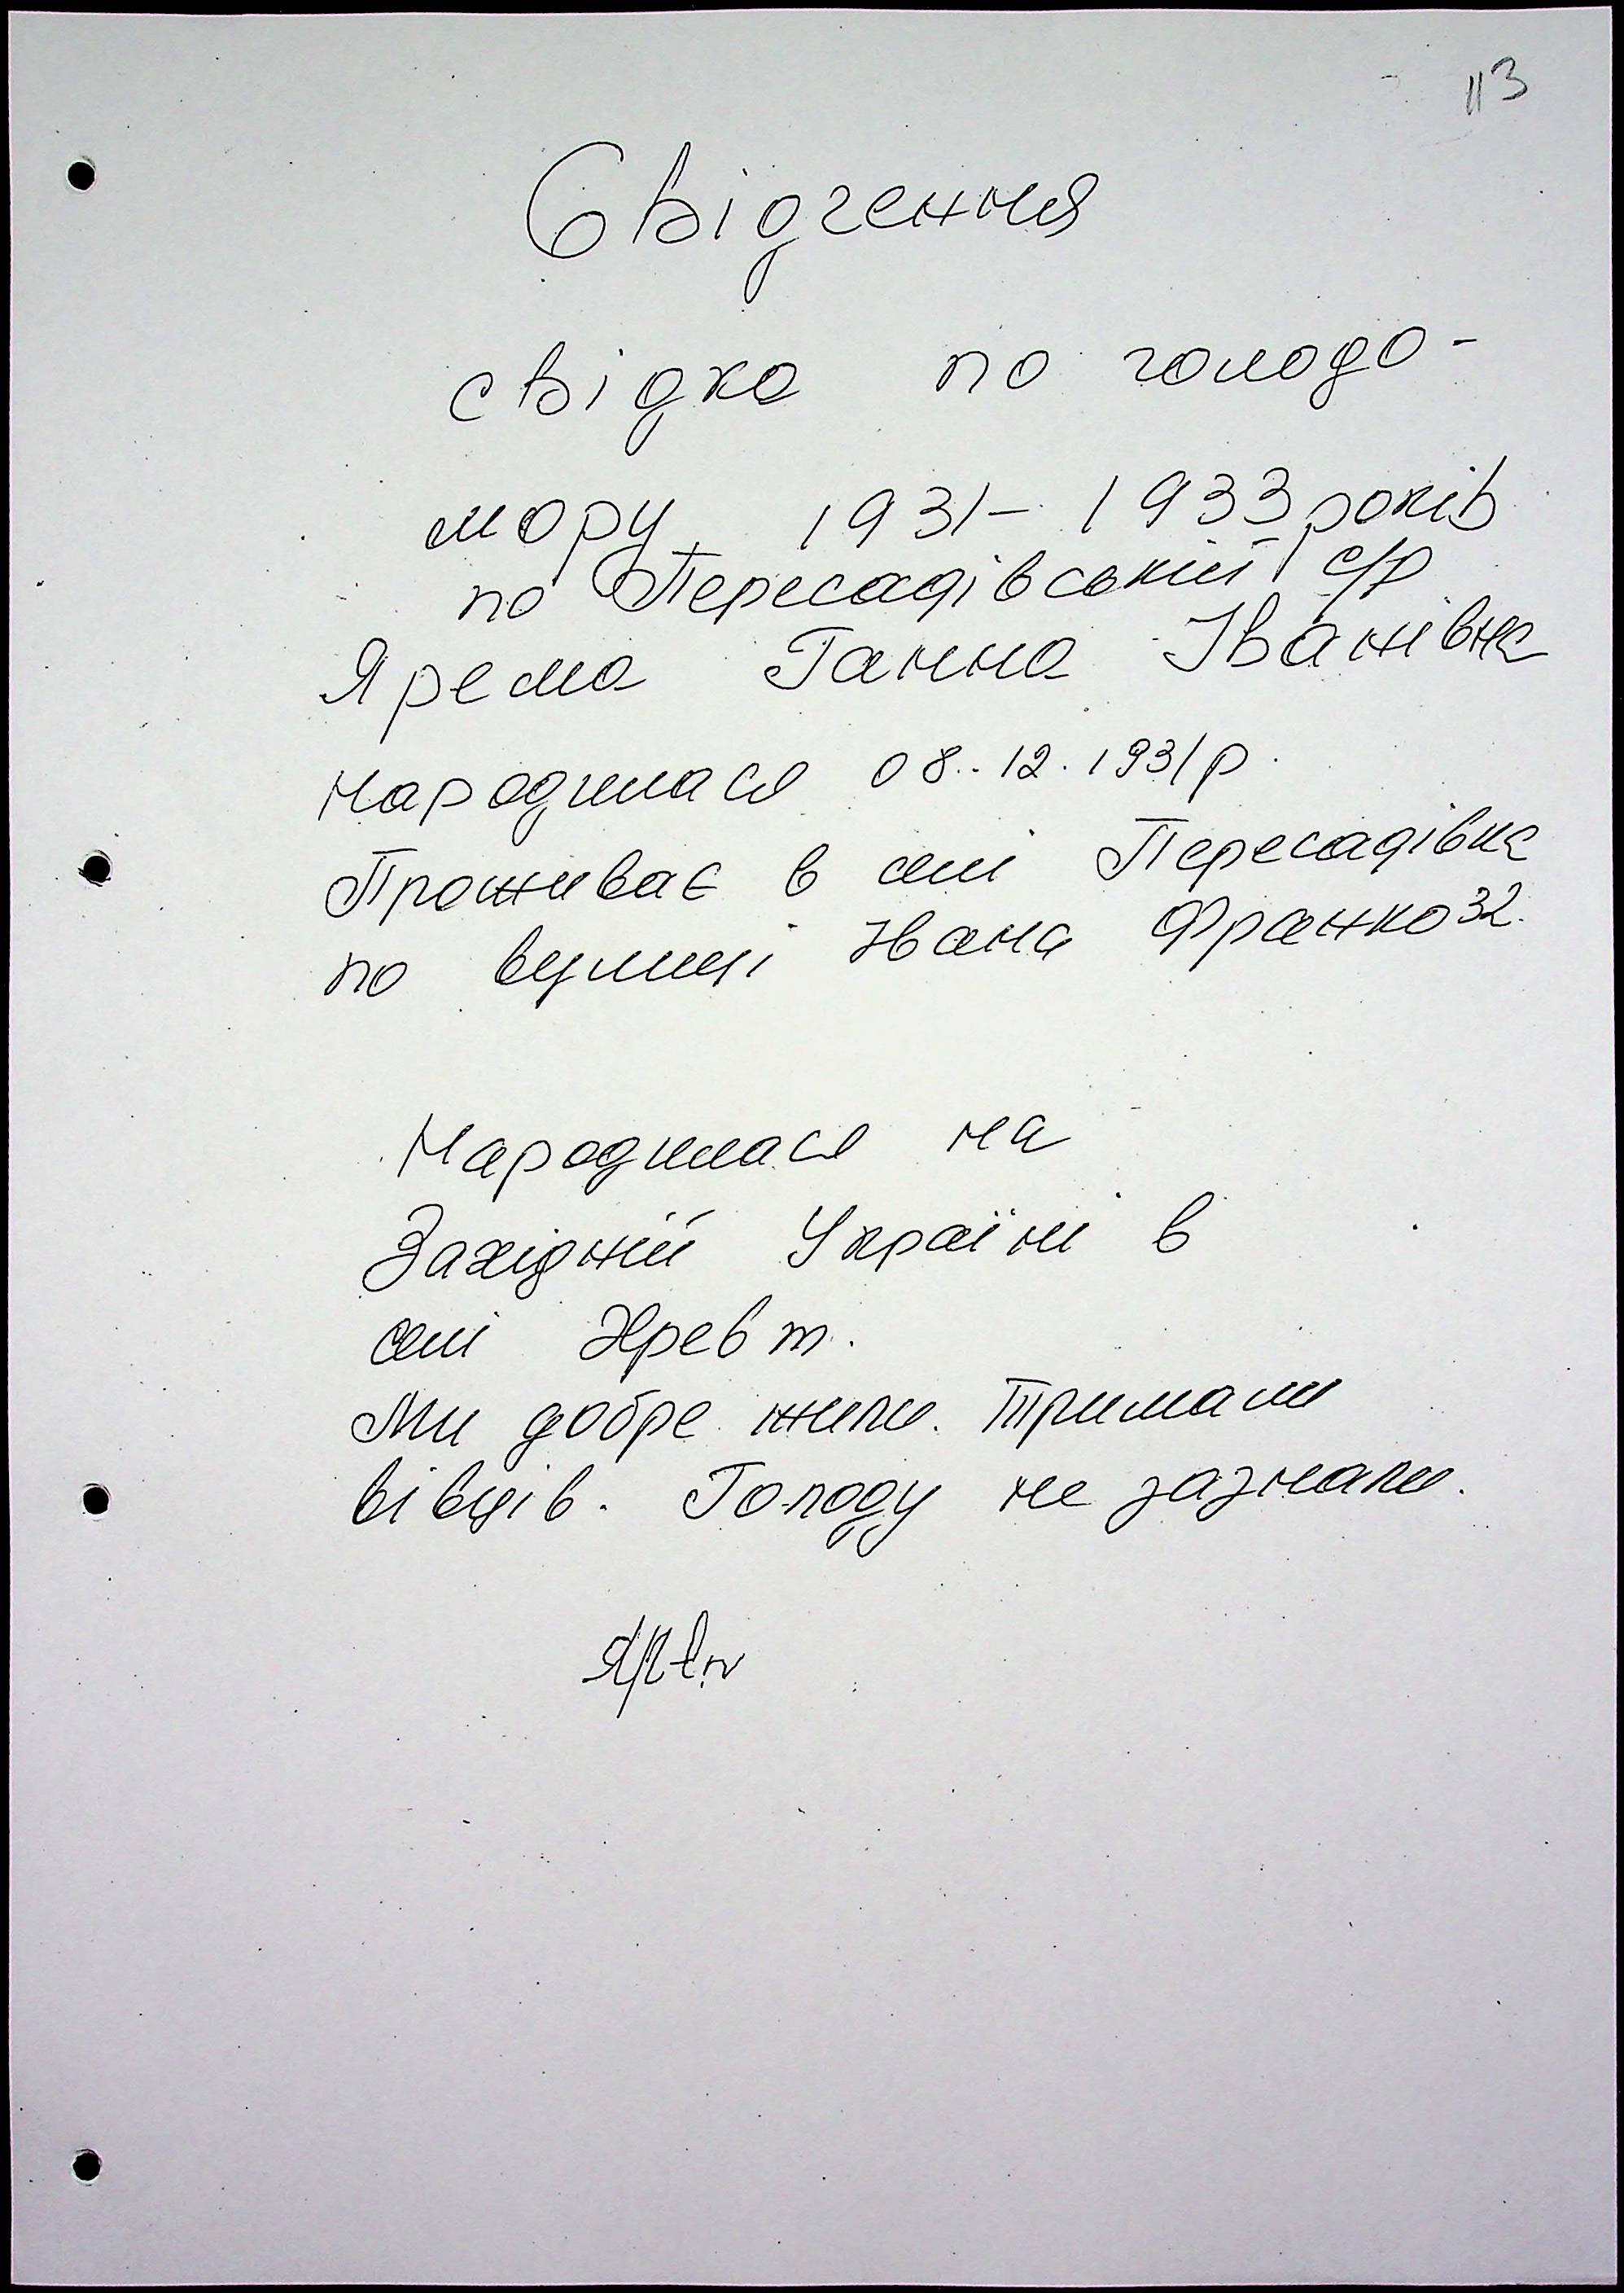 113
Свідчення
свідка по голодо-
мору 1931-1933 років
по Пересадівській с/р
Ярема Ганна Іванівна
народилася 08.12.1931р.
Проживає в селі Пересадівка
по вулиці Івана Франко 32.
Народилася на
Західній Україні в
селі Кревт.
Ми добре жили. Тримали
вівців. Голоду не зазнали.